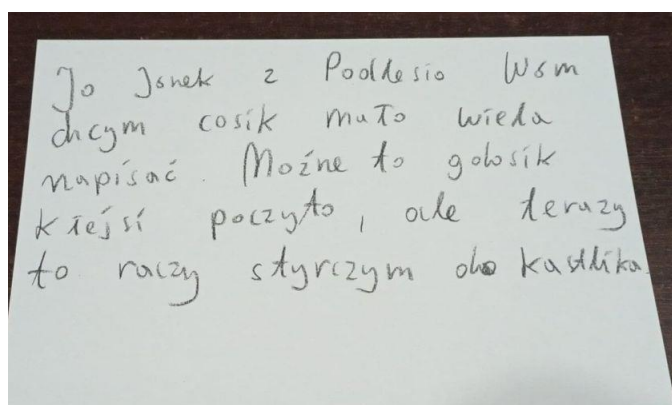 Jo Jonek z Podlesio Wom
chcym cosik mało wiela
napisać. Moźne to golosik
kiejsi poczyto, ale terazy
to raczy styrczym do kastlika.